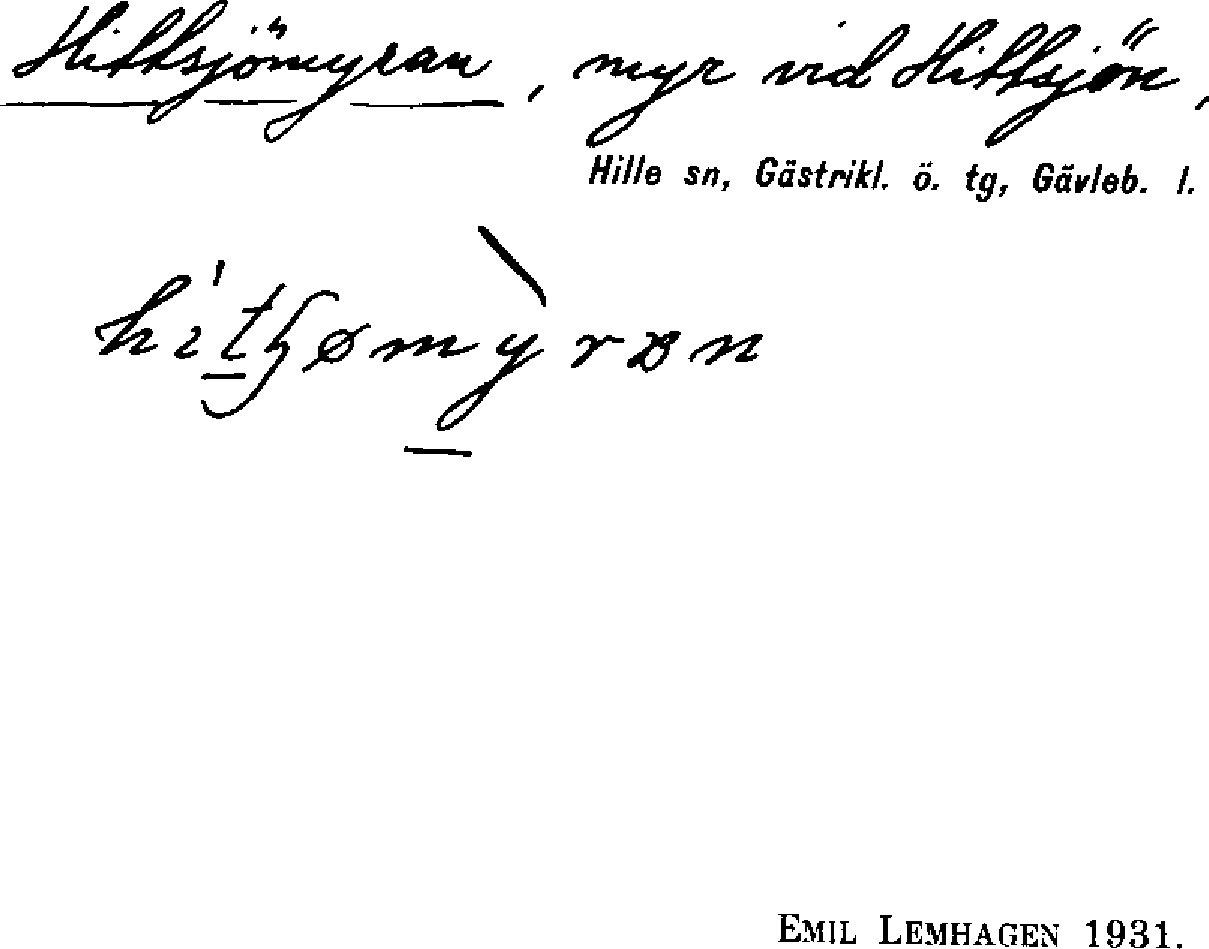 Hittsjömyran, myr vid Hittsjön,
Hille sn, Gästrikl. ö. tg, Gävleb. l.
EMIL LEMHAGEN 1931.